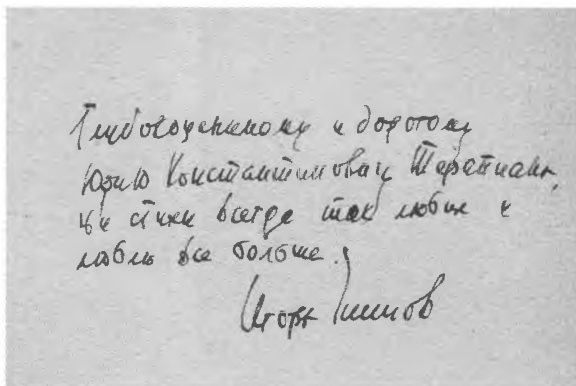 Глубокоценимому и дорогому
Юрию Константиновичу Терапиано,
чьи стихи всегда так любил и
люблю все больше.
Игорь Чиннов